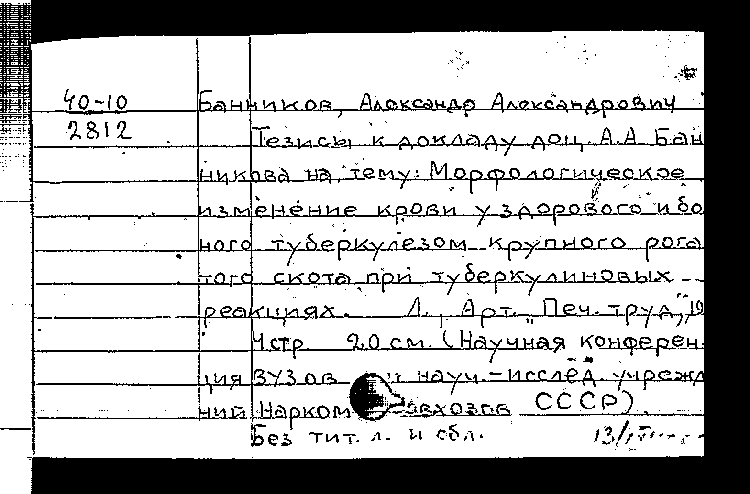 40-10 Банников, Александр Александрович
2812 Тезисы к докладу доц. А.А. Бан
никова на тему: Морфологическое
изменение крови у здорового и бо
ного туберкулезом крупного рога
того скота при туберкулиновых
реакциях. Л., Арт. "Печ. труд", 19
4 стр. 20 см. (Научная конферен.
ция ВУЗов науч.-исслед. учрежд
ний Нарком СССР)
Без тит. л. и обл.